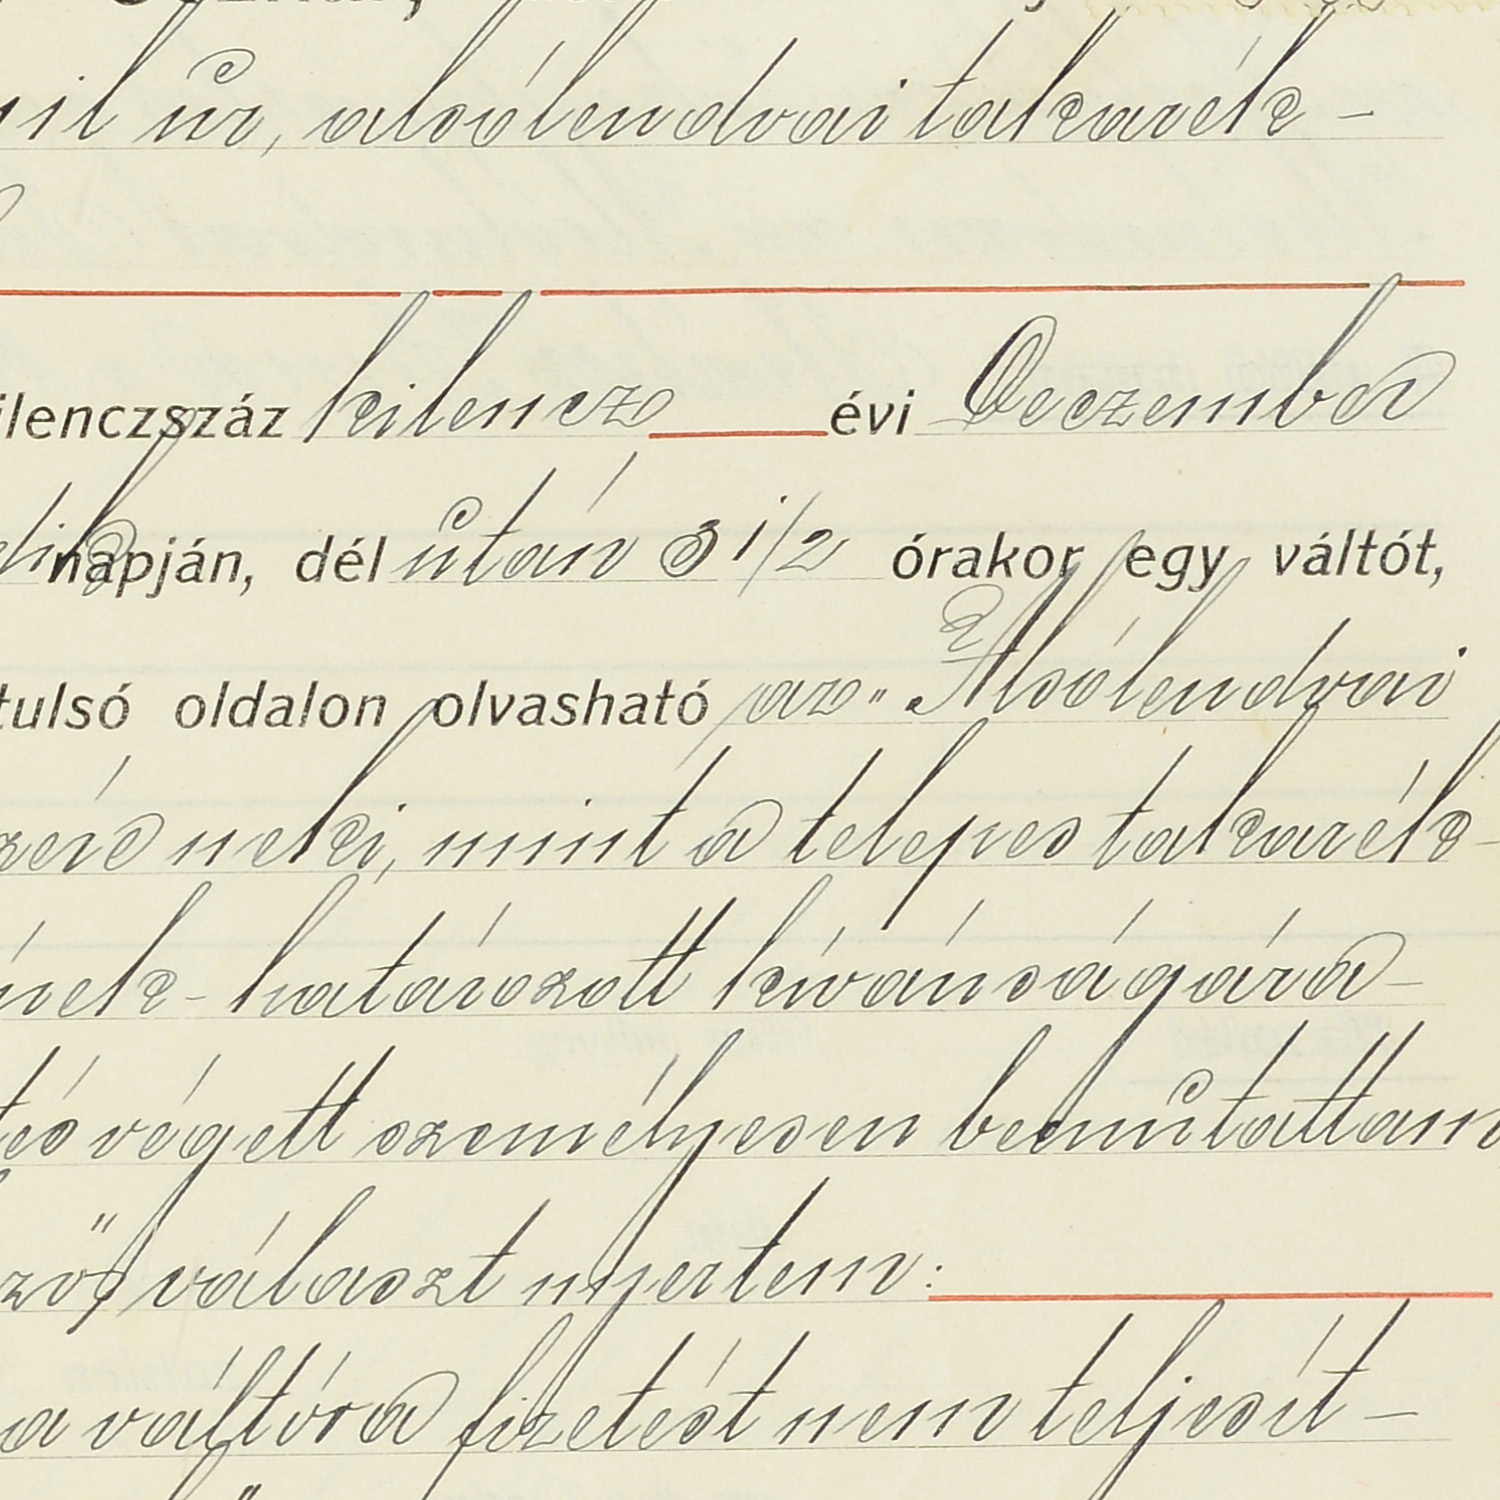 il úr, alsólendvai takarék-
ilenczszáz kilencz évi Deczember
dik napján, dél után 3 1/2 órakor egy váltót,
tulsó oldalon olvasható az „Alsólendvai
neki, mint a telepes takarék-
nek - határozott kívánságára -
tés végett személyesen bemutattam
választ nyertem:
a váltóra fizetést nem teljesít-